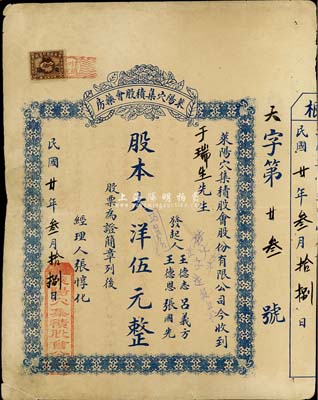 萊陽穴集積股會藥房
天字第廿叁號
萊陽穴集積股會股份有限公司今收到
于瑞生先生
發起人
王德志 呂義方
王德恩 張國光
股本大洋伍元整
股票為證簡章列後
經理人張惇化
民國廿年叁月拾捌日
民國廿年叁月拾捌日